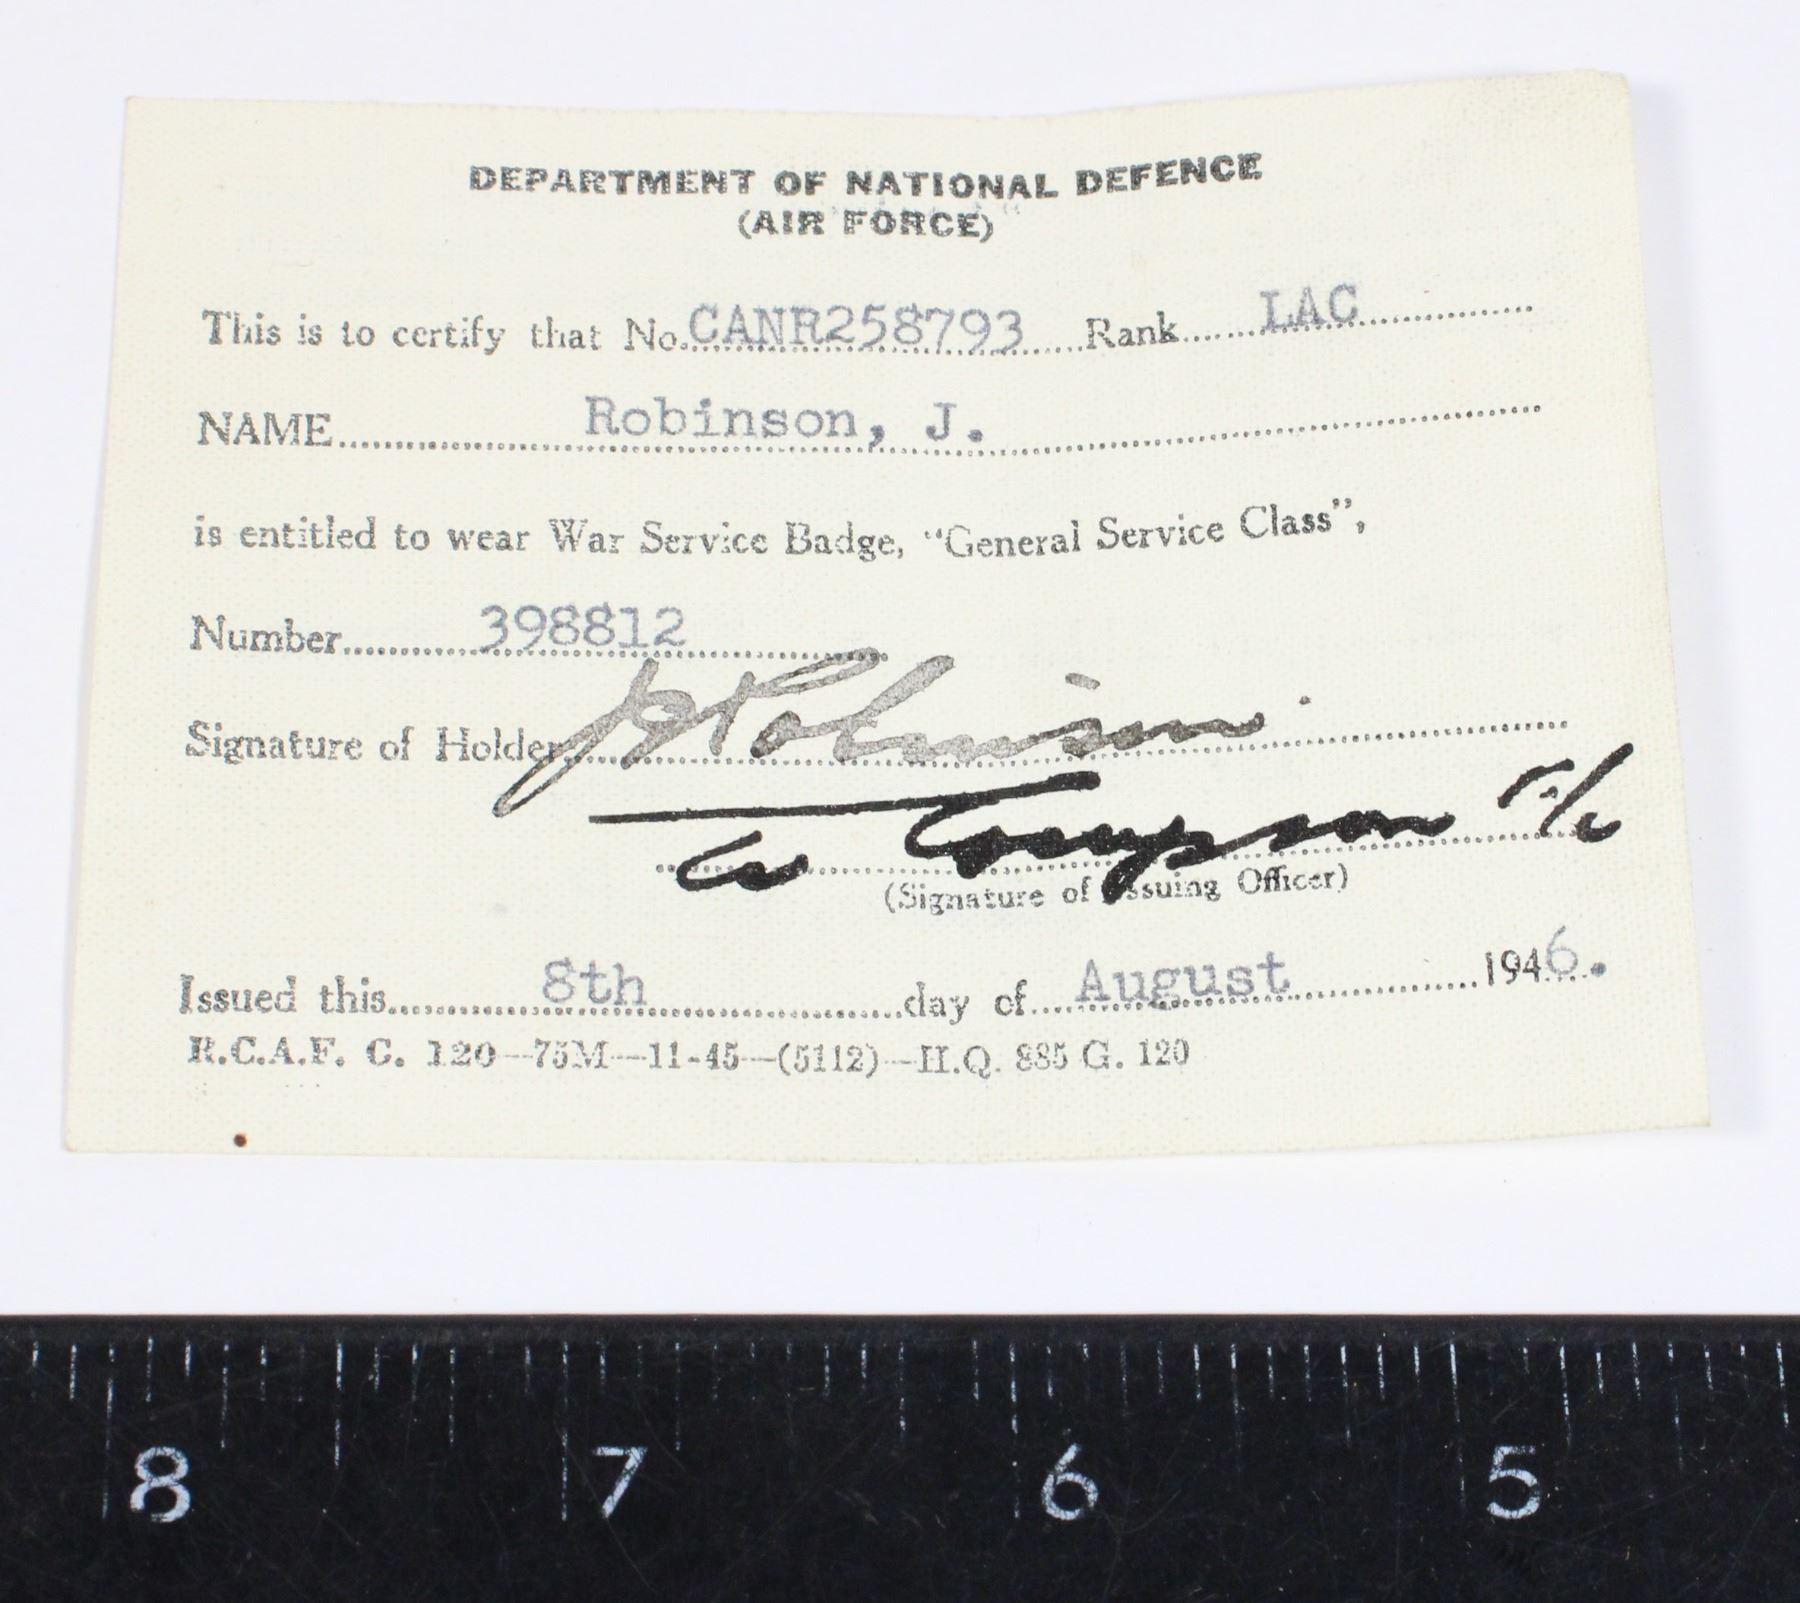 DEPARTMENT OF NATIONAL DEFENCE
(AIR FORCE)
This is to certify that No. CANR258793 Rank LAC
NAME Robinson, J.
is entitled to wear War Service Badge, "General Service Class",
Number 398812
Signature of Holder J Robinson
(Signature of Issuing Officer)
Issued this 8th day of August 1946.
R.C.A.F. G. 120—75M—11-45—(5112)—H.Q. 885 G. 120
8 7 6 5